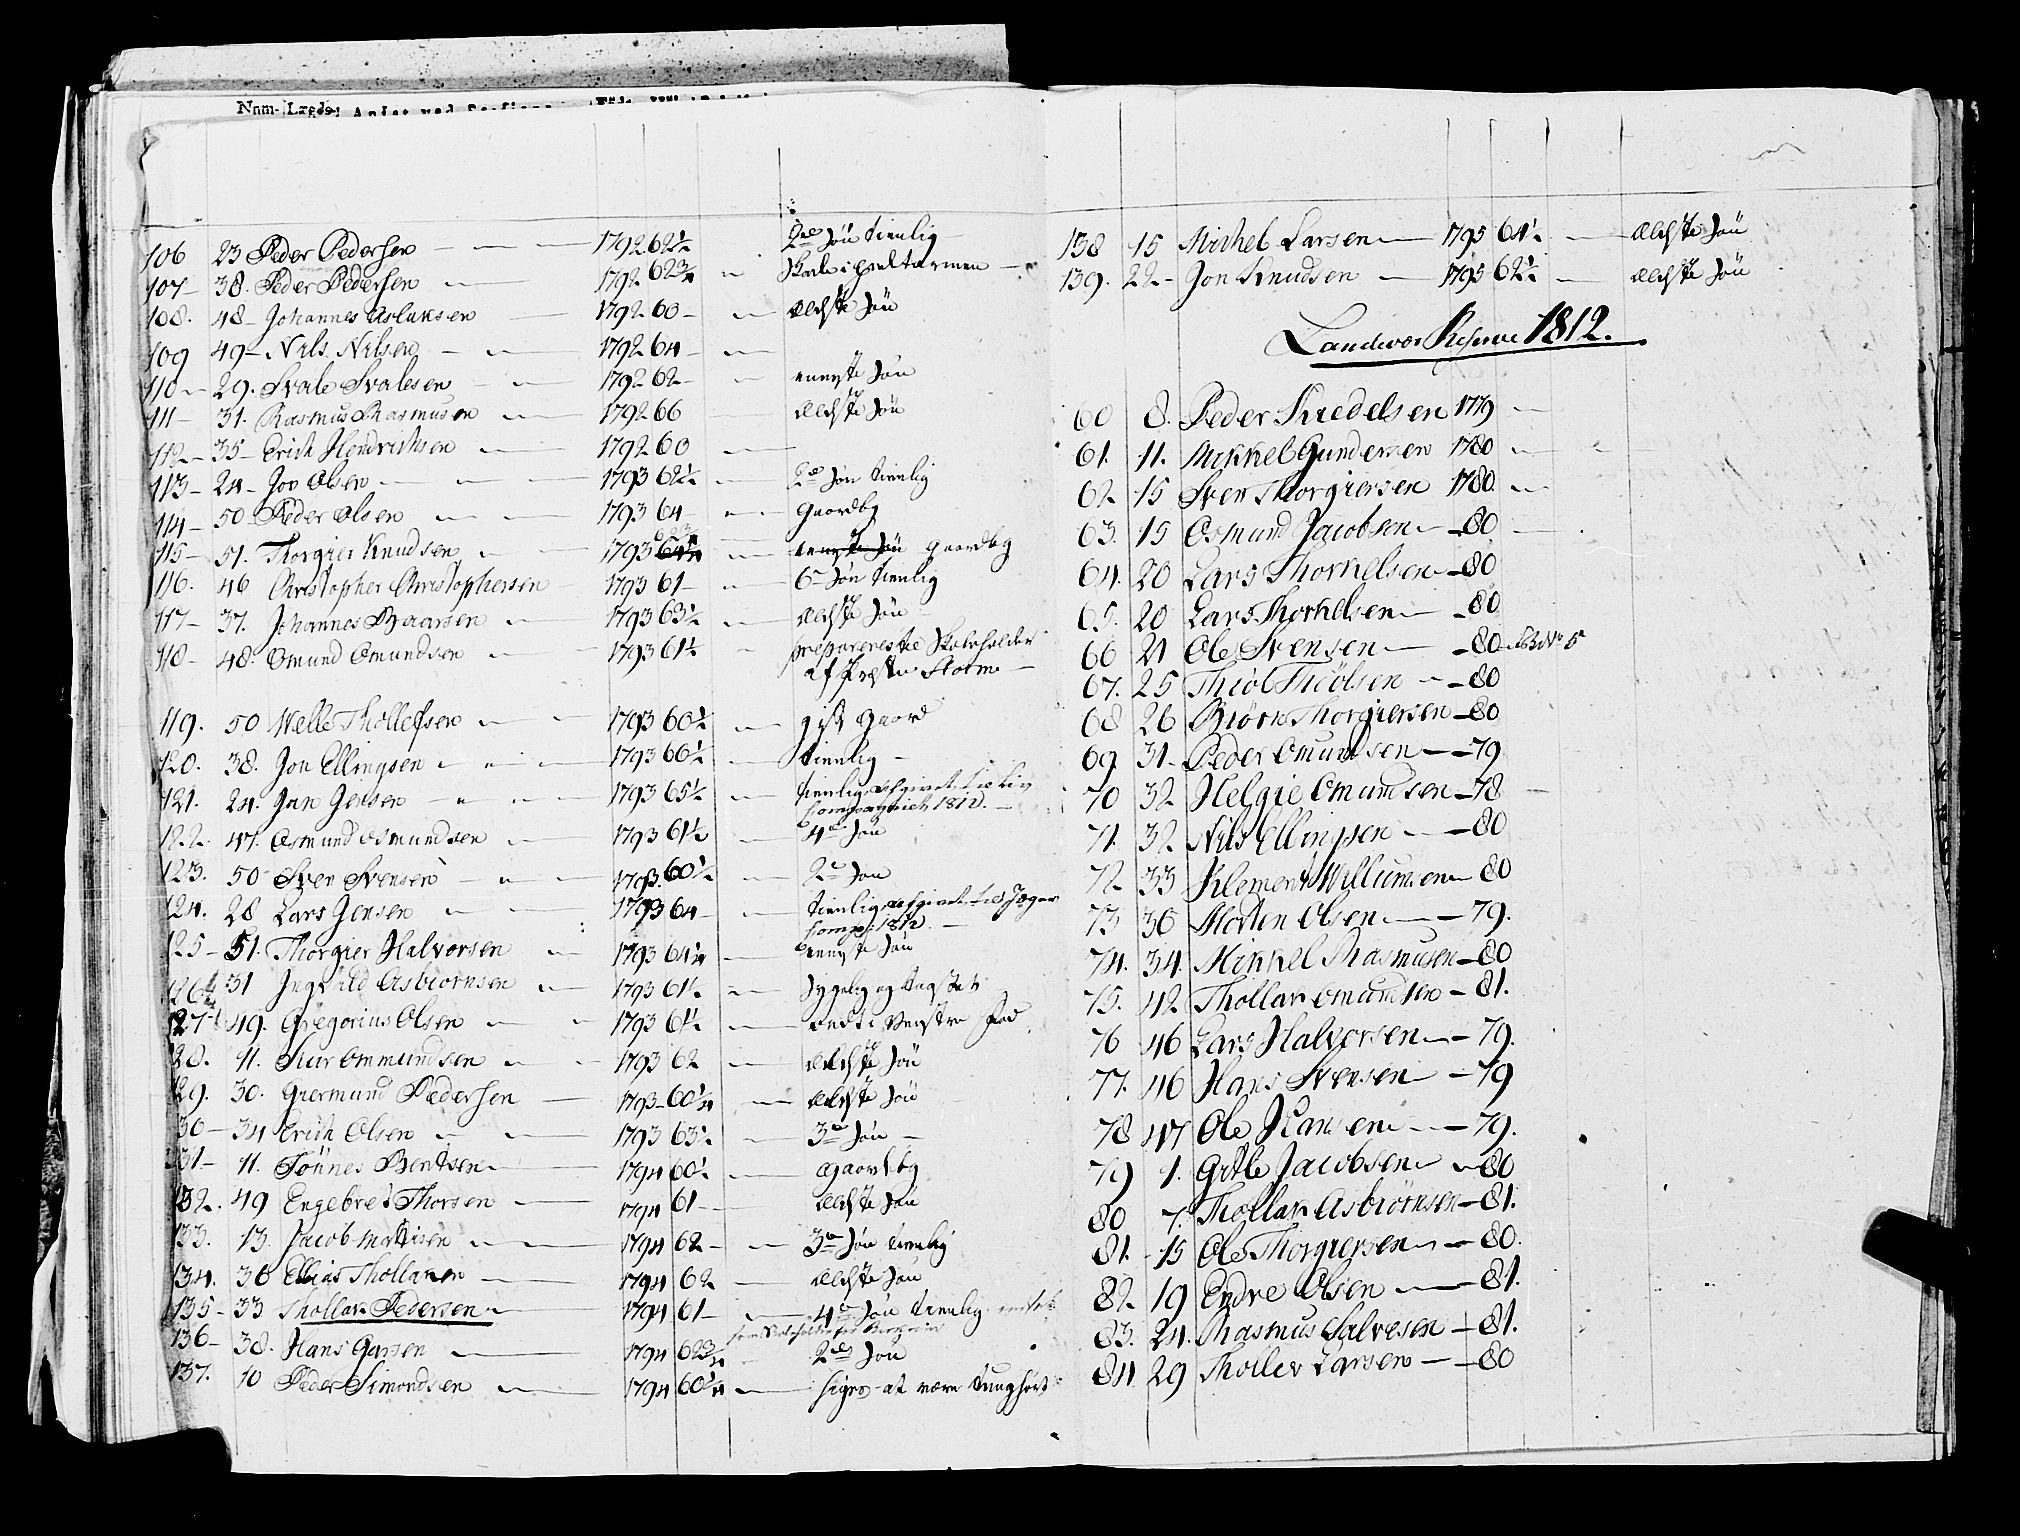 Num- Lægds-
106 23 Peder Pedersen 1792 62½ 2de Søn tienlig
107 38. Peder Pedersen 1792 62¾
108. 48 Johannes Aslaksen 1792 60 Ældste Søn
109 49 Nils Nilsen 1792 64
110 29. Svale Svalesen 1792 62 eneste Søn
111 31. Rasmus Rasmusen 1792 66 Ældste Søn
112 35 Erich Hendrichsen 1792 60
113 24 Jon Olsen 1793 62½ 2de Søn tienlig
114 50 Peder Olsen 1793 64 gaardbg
115 51. Thorgier Knudsen 1793 gaardbg
116. 46 Christopher Christophersen 1793 61 6te Søn tienlig
117 37. Johannes Baarsen 1793 63½ Ældste Søn
118 48. Omund Omundsen 1793 61½ Skoleholder
af Præsten
119. 50 Welle Thollefsen 1793 60½ gift gaard
120. 38. Jon Ellingsen 1793 66½ tienlig
121. 24. Jan Jensen 1793 65½ tienlig afgivet til Liv
Compagniet 1812.
122. 47. Osmund Osmundsen 1793 61½ 4de Søn
123. 50 Sven Svensen 1793. 60½ 2de Søn
124. 28 Lars Jensen 1793 64 tienlig afgivet til Jæger
Comp: 1812.
125 51. Thorgier Halvorsen 1793 64¼ eneste Søn
126 31 Ingvald Asbiørnsen 1793 61½ sygelig og
127 49. Gregorius Olsen 1793 61½ Venstre Fod
28. 11. Siur Ommundsen 1793 62 Ældste Søn
29. 30. Giermund Pedersen 1793 60¼ Ældste Søn
30 34 Erich Olsen 1793 63½ 3de Søn
31 11. Tønnes Bentsen 1794 60½ gaardbg
132. 49 Engebret Thorsen 1794 61 Ældste Søn
133. 13. Jacob Mathisen 1794 62 3de Søn tienlig
134. 36 Ellias Thollarsen 1794 62 Ældste Søn
135 33 Thollar Pedersen 1794 61 4de Søn tienlig
136 38. Hans Garsen 1794 62¾ 2den Søn
137. 10 Peder Simondsen 1794 60¼ siges at være tunghørt
138 15 Michel Larsen 1795 64½ Ældste Søn
139. 22 Jon Knudsen 1795 62½ Ældste Søn
Landevær Reserve 1812.
60 8. Peder Kiedelsen 1779
61. 11. Mikkel Gundersen 1780
62 15 Sven Thorgiersen 1780
63. 15 Osmund Jacobsen 80
64. 20 Lars Thorkelsen 80
65. 20 Lars Thorkelsen 80
66 21 Ole Svensen 80 No 5
67. 25 Thiøl Thiølsen 80
68 26 Biørn Thorgiersen 80
69 31 Peder Omundsen 79
70 32 Helgie Omundsen 78
71. 32 Nils Ellingsen 80
72 33 Klement Willumsen 80
73 36 Morten Olsen 79.
74. 34. Mikkel Rasmusen 80
75. 42 Thollar Omundsen 81.
76 46 Lars Halvorsen 79.
77. 46 Hans Svensen 79
78 47 Ole Hansen 79.
79 1. Gitle Jacobsen 80
80 7. Thollar Asbiørnsen 81.
81. 15 Ole Thorgiersen 80.
82 19 Endre Olsen 81.
83. 24. Rasmus Salvesen 81.
84 29 Thollev Larsen 80